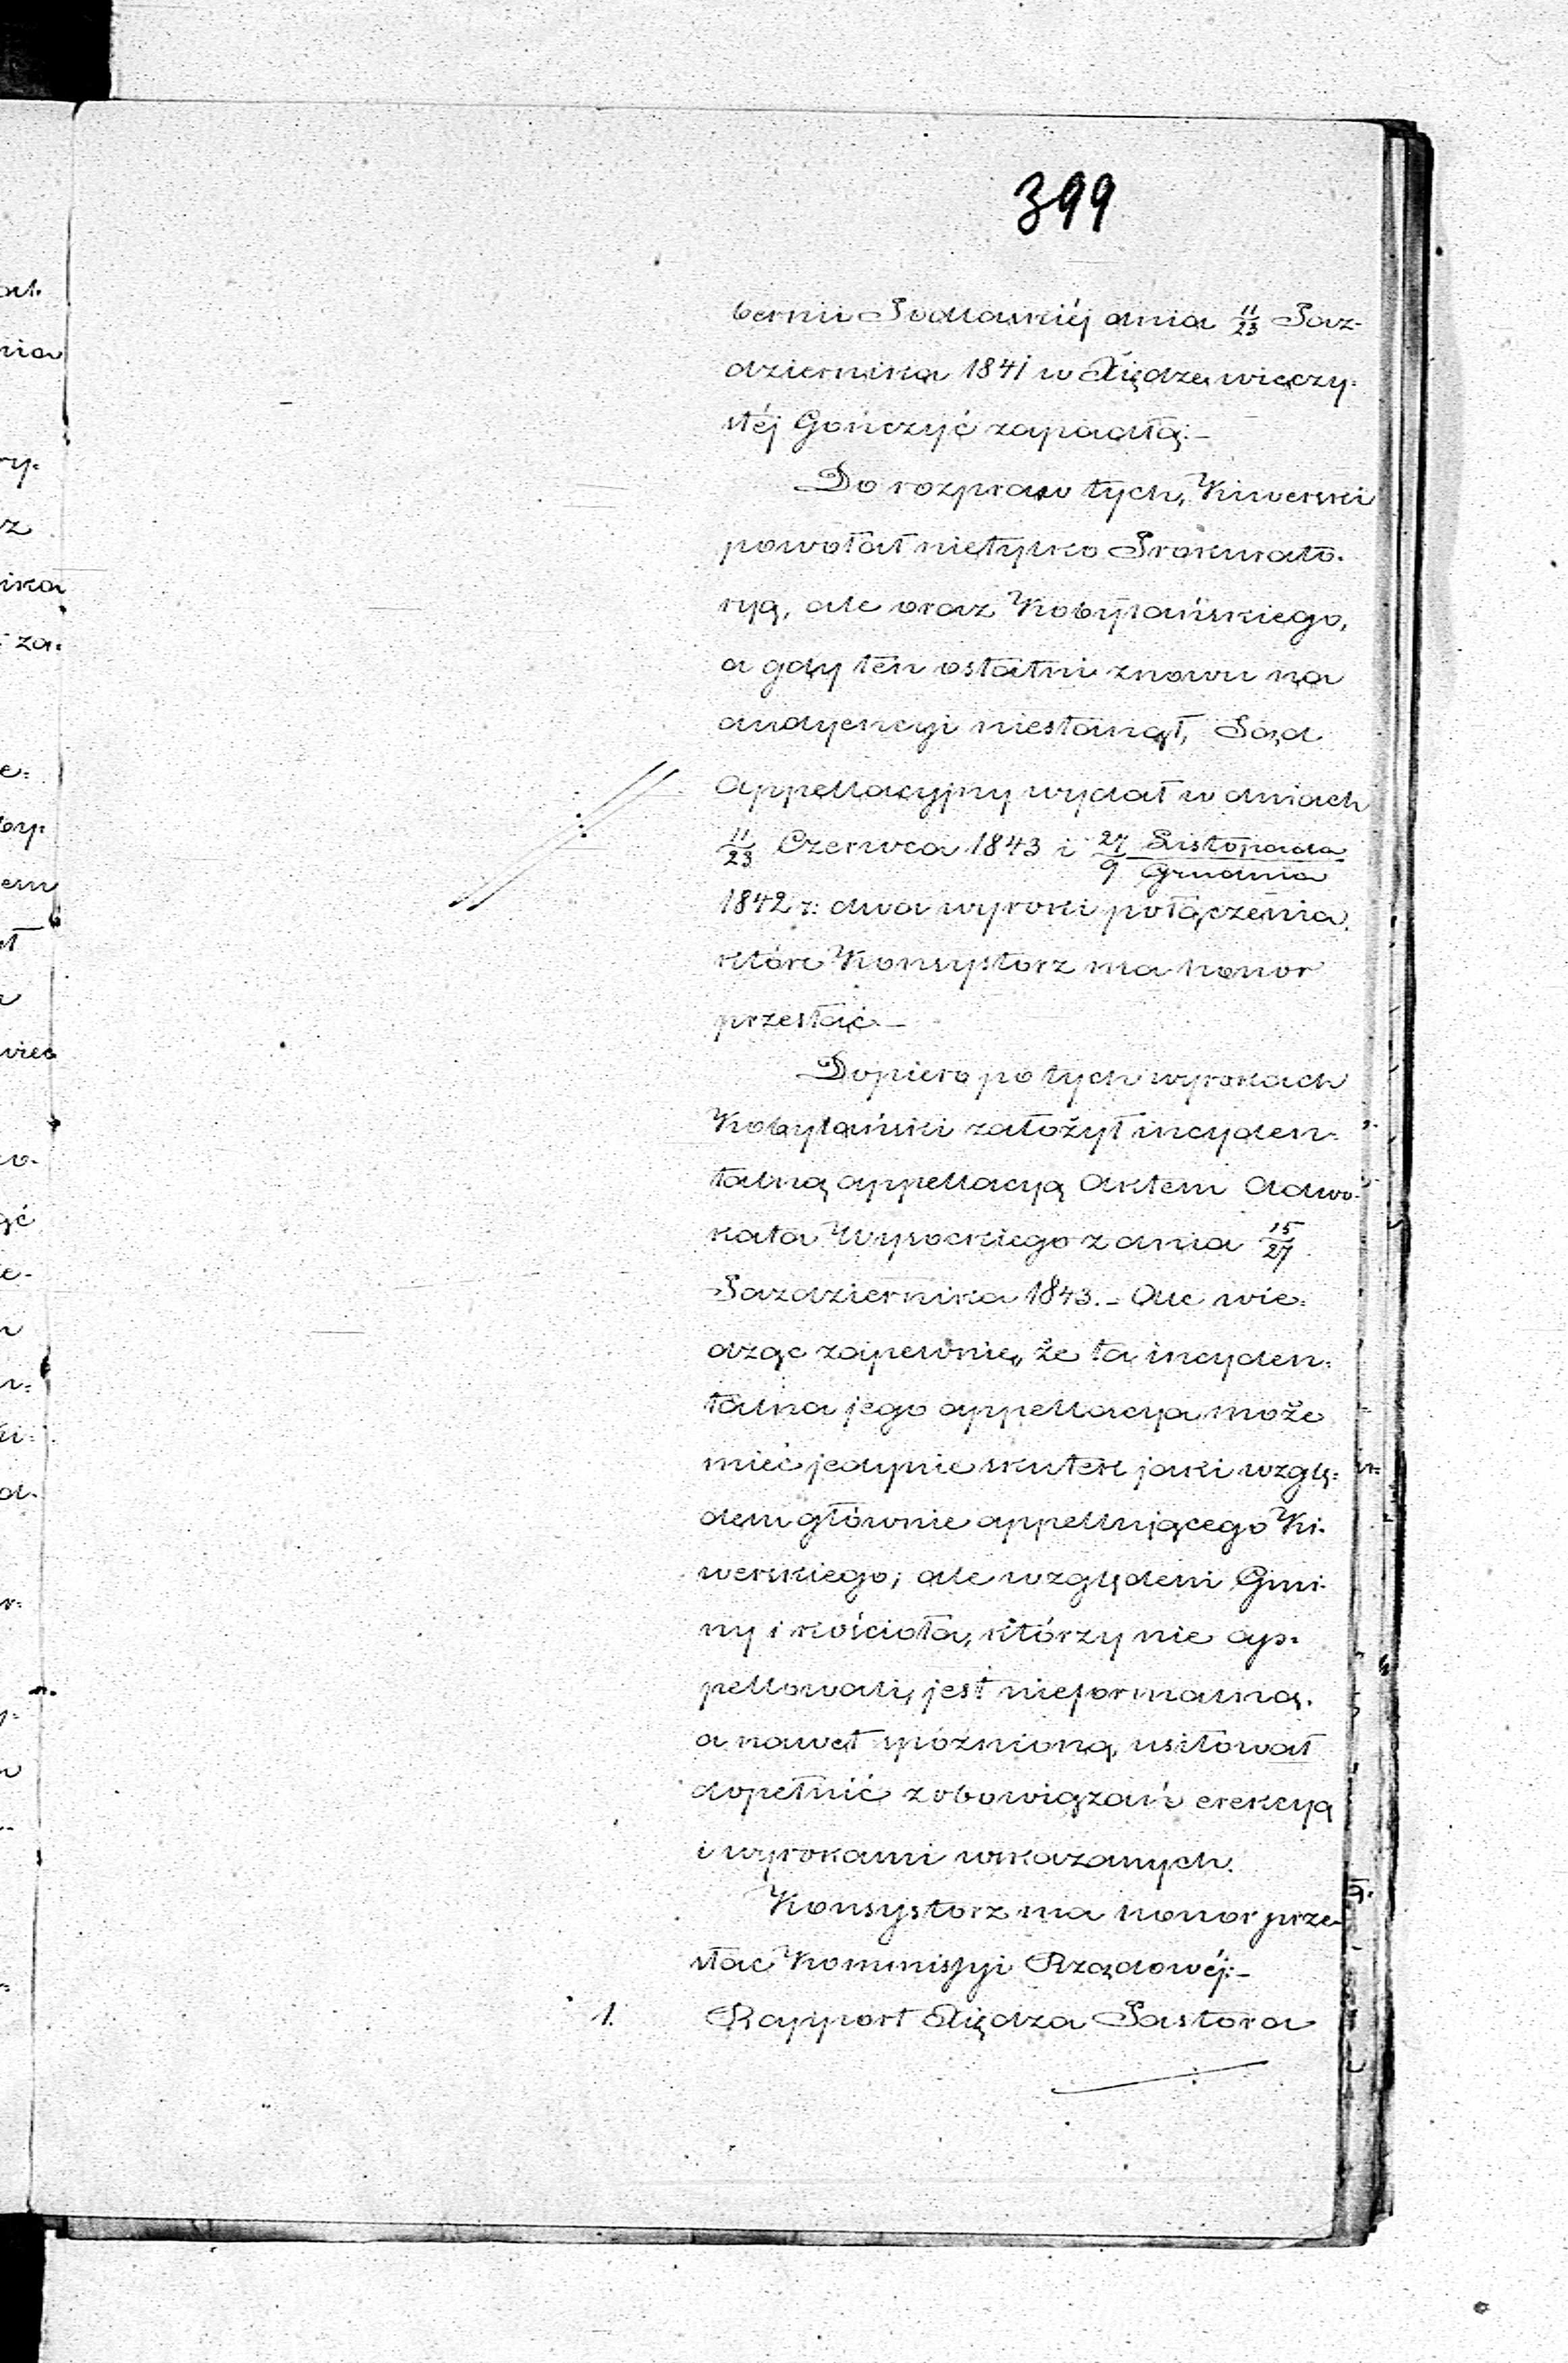 399
bernii Podlaskiéj dnia 11/23 Paz-
dziernika 1841 w Xiędze wieczy-
stéj Gończyć zapadłą:-
Do rozpraw tych, Kiwerski
powołał nietylko Prokurato-
ryą, ale oraz Kobylańskiego,
a gdy ten ostatni znowu na
audyencyi niestanął, Sąd
Appellacyjny wydał w dniach
11/23 Czerwca 1843 i 27 Listopada / 9 Grudnia
1842 r: dwa wyroki połączenia,
które Konsystorz ma honor
przesłać.-
Dopiero po tych wyrokach
Kobylański założył incyden-
talną appellacyą Aktem Adwo-
kata Wysockiego z dnia 15/27
Pazdziernika 1843.- Ale wie-
dząc zapewnie, że ta incyden-
talna jego appellacya może
mieć jedynie skutek jaki wzglę-
dem głównie appellującego Ki-
werskiego; ale względem Gmi-
ny i kościoła, którzy nie ap-
pellowali, jest nieformalną,
a nawet spóźnioną, usiłował
dopełnić zobowiązań erekcyą
i wyrokami wskazanych.
Konsystorz ma honor prze-
słać Kommissyi Rządowéj:-
1. Rapport Xiędza Pastora